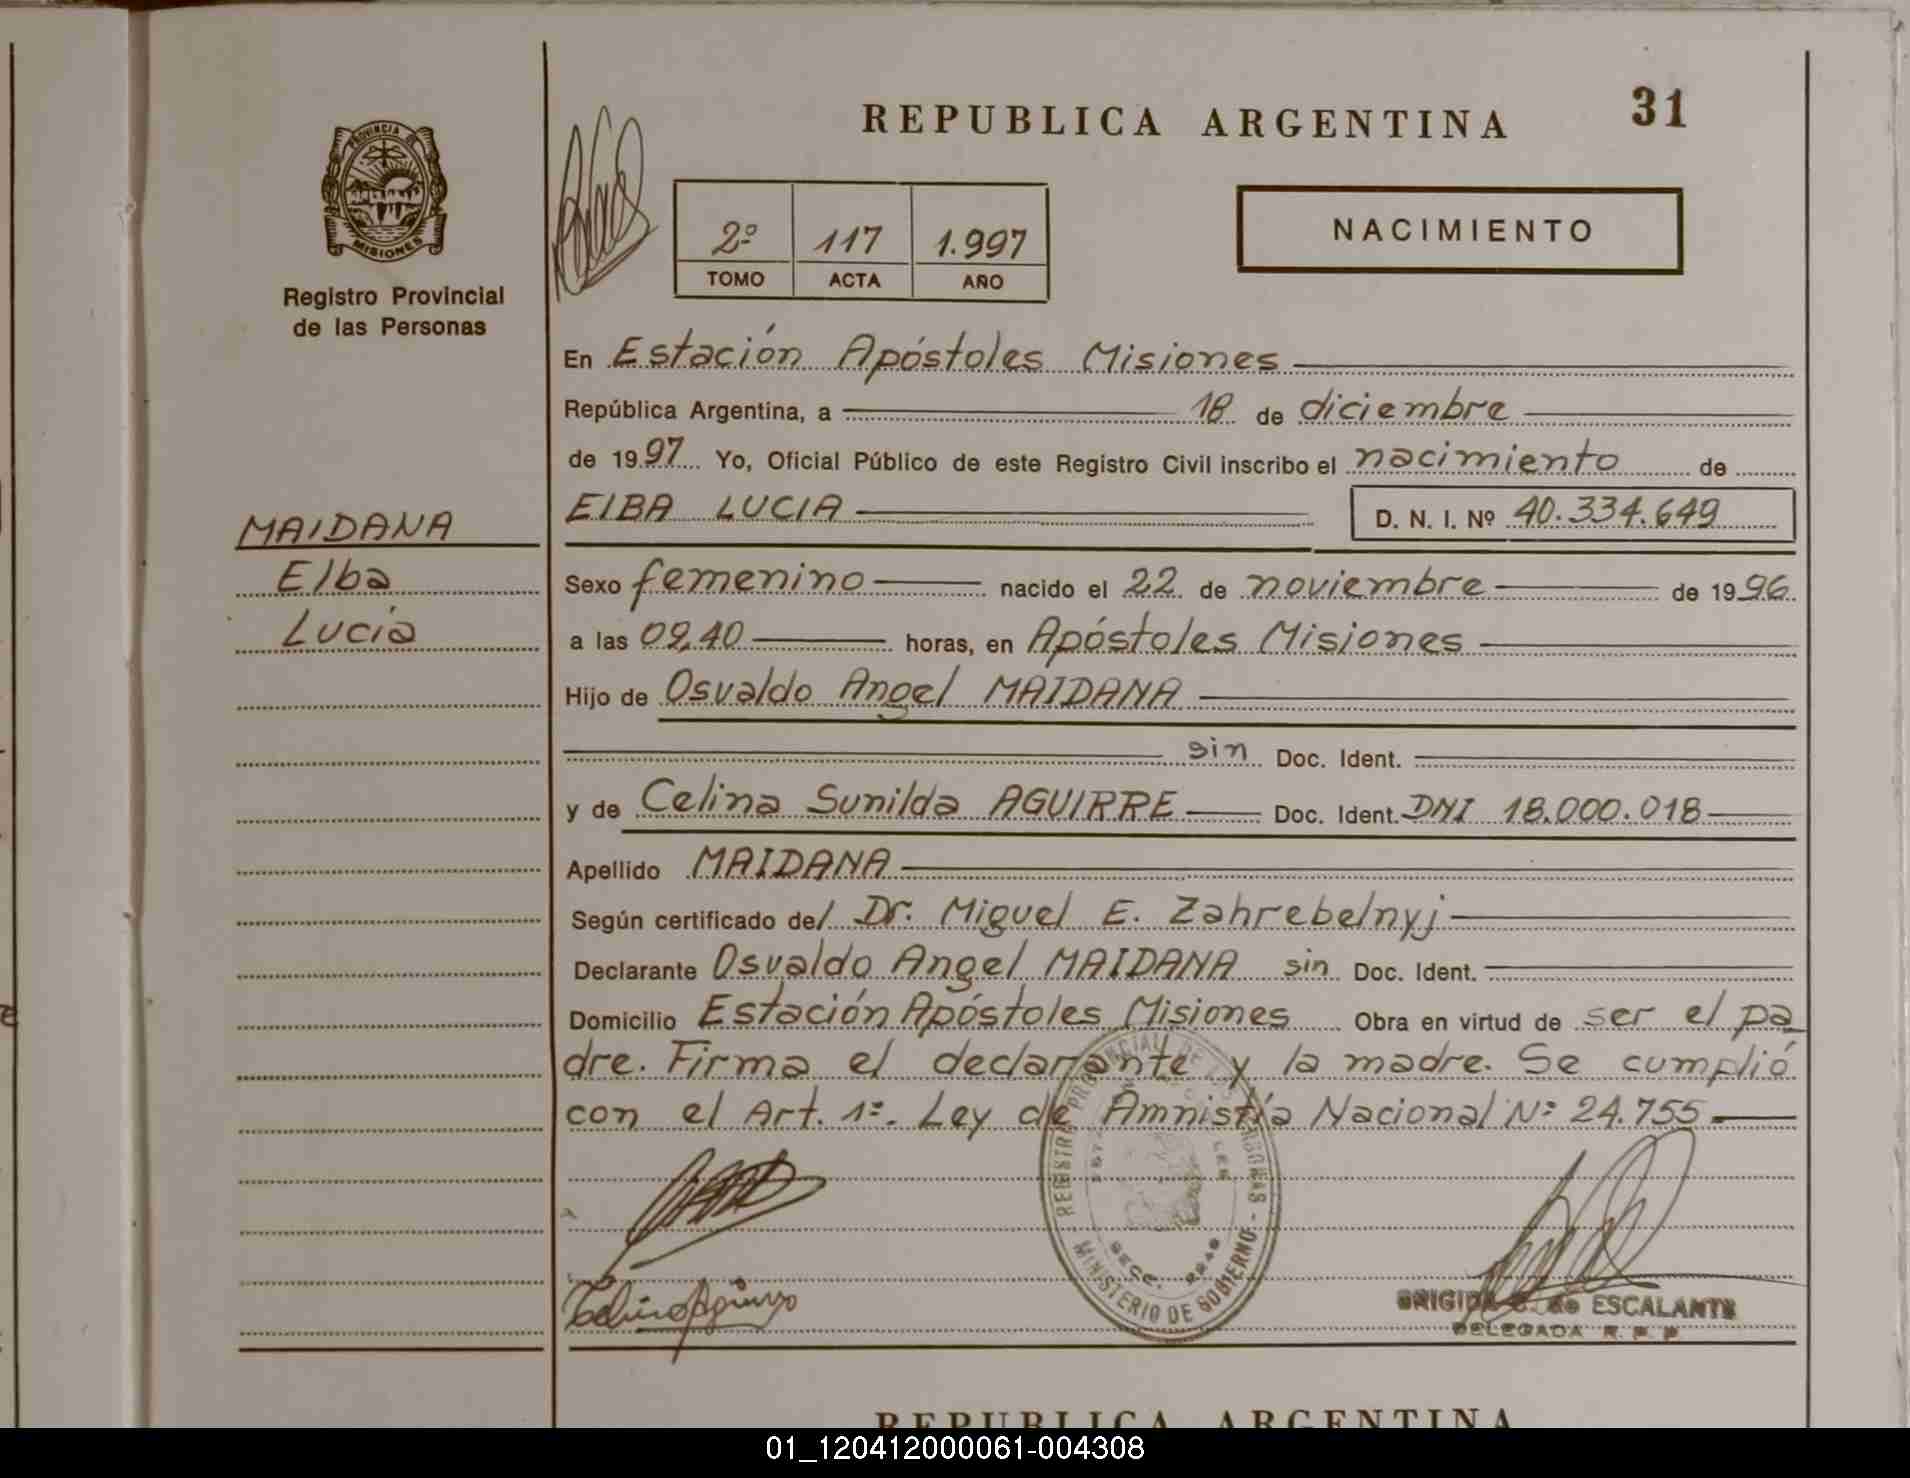 REPUBLICA ARGENTINA 31
PROVINCIA DE
MISIONES
Registro Provincial
de las Personas
2º 117 1.997
TOMO ACTA AÑO
NACIMIENTO
En Estación Apóstoles Misiones
República Argentina, a 18 de diciembre
de 1997 Yo, Oficial Público de este Registro Civil inscribo el nacimiento de
ElBA LUCIA D. N. I. Nº 40.334.649
MAIDANA
Elba
Lucia
Sexo femenino nacido el 22 de noviembre de 1996
a las 09,40 horas, en Apóstoles Misiones
Hijo de Osvaldo Angel MAIDANA
sin Doc. Ident.
y de Celina Sunilda AGUIRRE Doc. Ident. DNI 18.000.018
Apellido MAIDANA
Según certificado del Dr. Miguel E. Zahrebelnyj
Declarante Osvaldo Angel MAIDANA sin Doc. Ident.
Domicilio Estación Apóstoles Misiones Obra en virtud de ser el pa
dre. Firma el declarante y la madre. Se cumplió
con el Art. 1º. Ley de Amnistía Nacional Nº 24.755.
REGISTRO PROVINCIAL DE LAS PERSONAS - MINISTERIO DE GOBIERNO
BRIGIDA de ESCALANTE
DELEGADA R. P. P.
REPUBLICA ARGENTINA
01_120412000061-004308